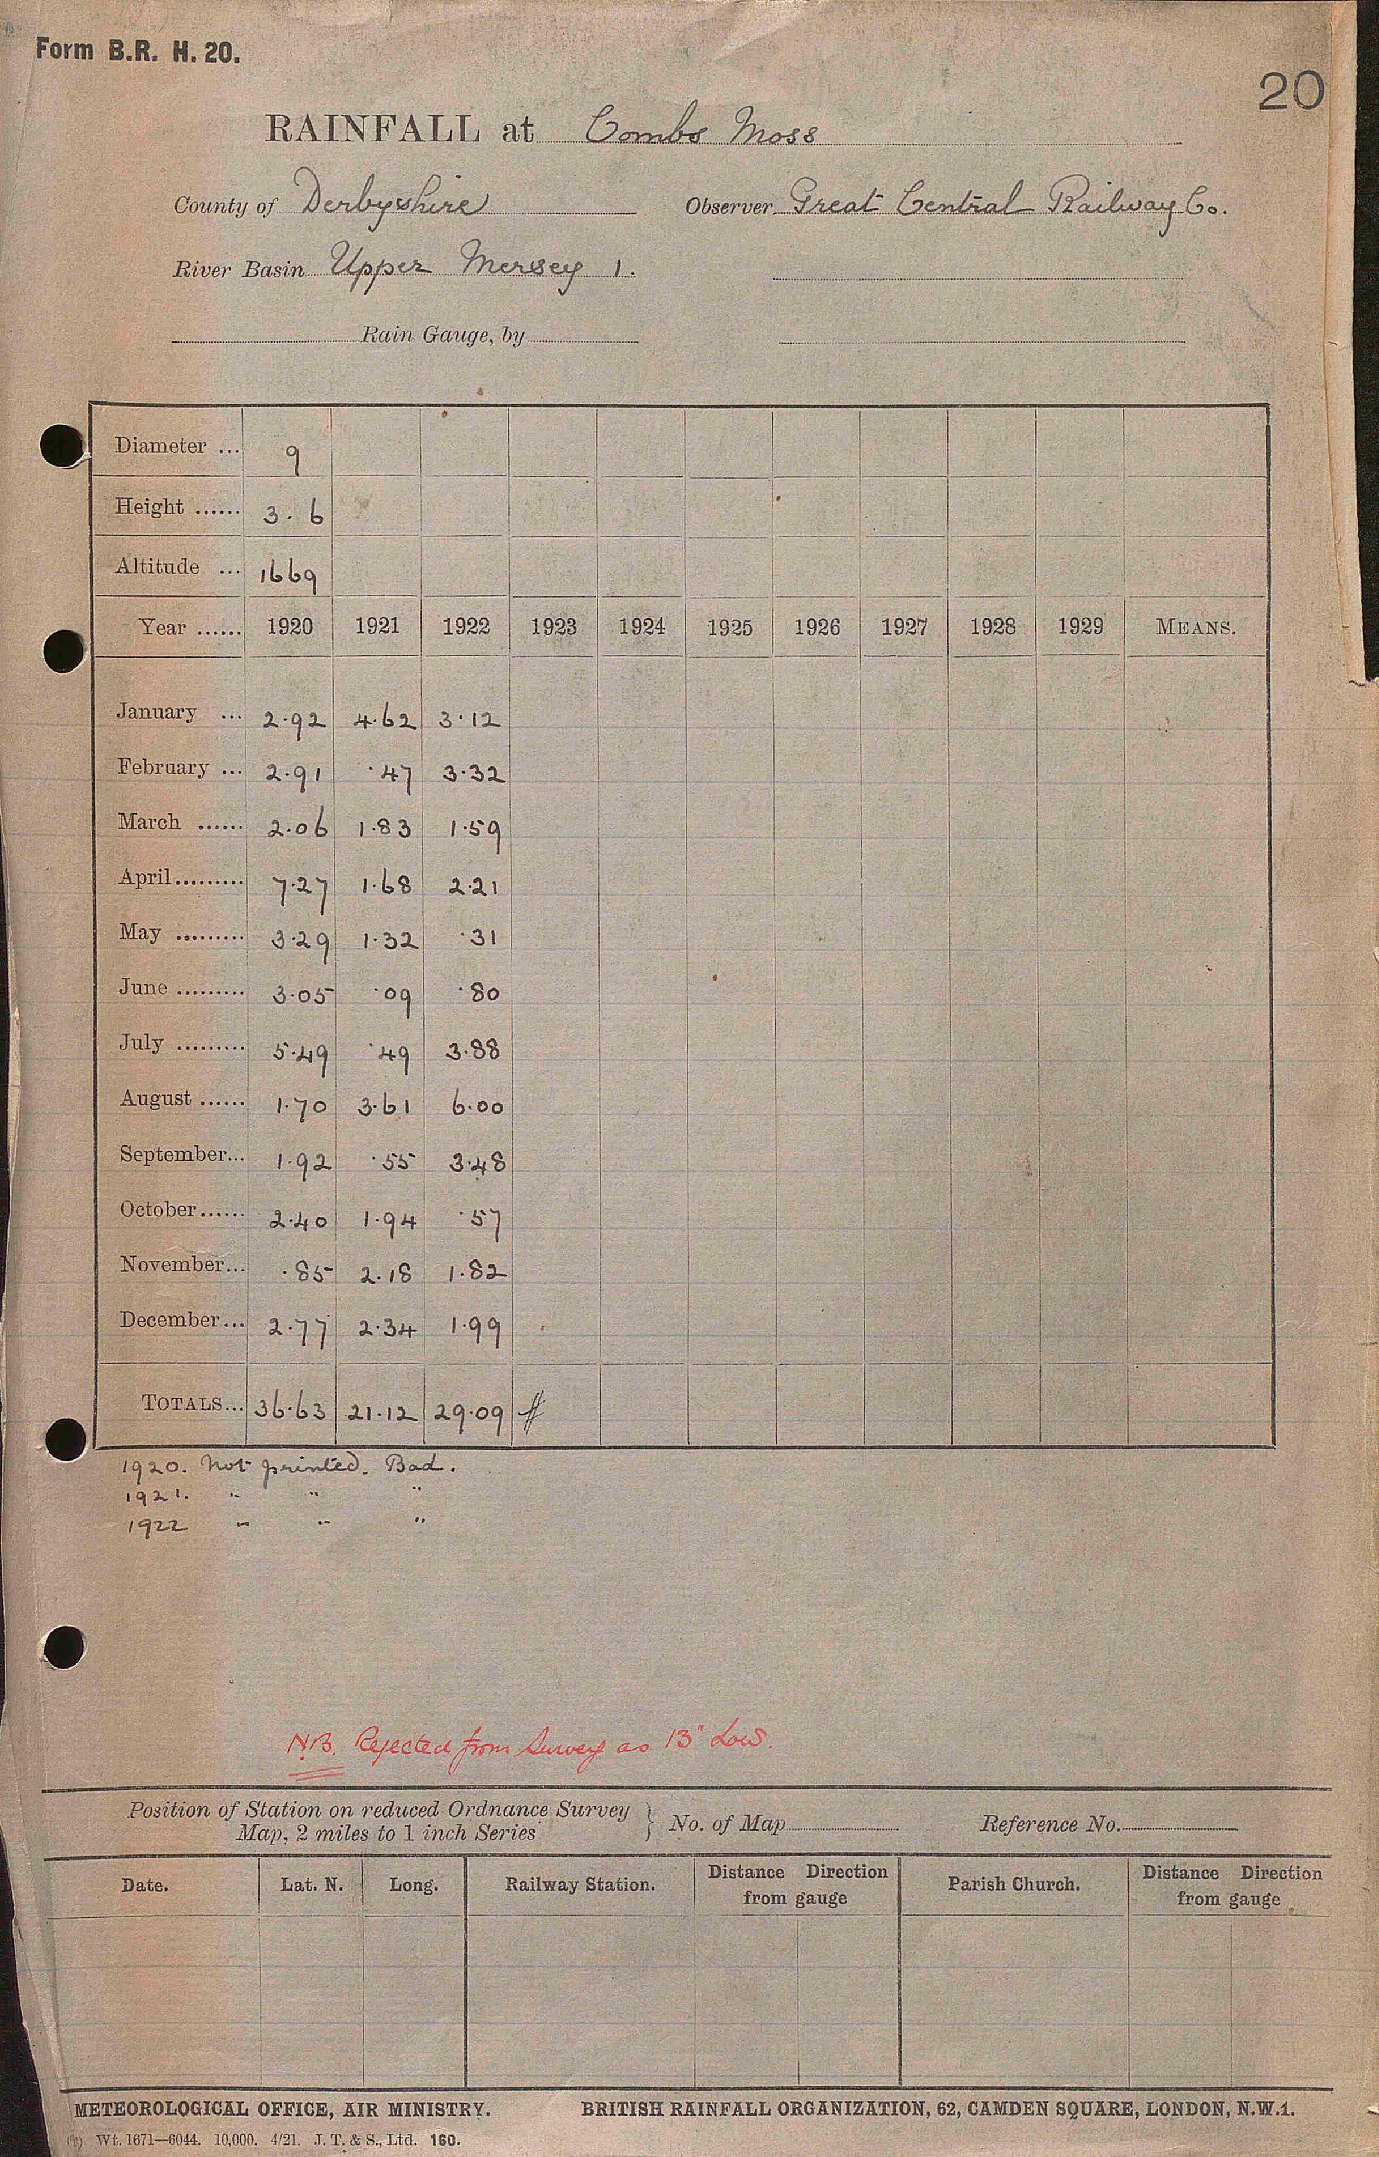 Form B.R. H. 20.
20
RAINFALL at Combs Moss
County of Derbyshire Observer Great Central Railway Co.
River Basin Upper Mersey 1.
Rain Gauge, by
Diameter ... 9
Height ...... 3. 6
Altitude ... 1669
Year ...... 1920 1921 1922 1923 1924 1925 1926 1927 1928 1929 MEANS.
January ... 2.92 4.62 3.12
February ... 2.91 .47 3.32
March ...... 2.06 1.83 1.59
April ......... 7.27 1.68 2.21
May ......... 3.29 1.32 .31
June ......... 3.05 .09 .80
July ......... 5.49 .49 3.88
August ...... 1.70 3.61 6.00
September... 1.92 .55 3.48
October ...... 2.40 1.94 .57
November... .85 2.18 1.82
December... 2.77 2.34 1.99
TOTALS... 36.63 21.12 29.09 #
1920. Not printed. Bad.
1921. " " "
1922 " " "
N.B. Rejected from Survey as 13" Low.
Position of Station on reduced Ordnance Survey
Map, 2 miles to 1 inch Series } No. of Map Reference No.
Date. Lat. N. Long. Railway Station. Distance Direction from gauge Parish Church. Distance Direction from gauge
METEOROLOGICAL OFFICE, AIR MINISTRY. BRITISH RAINFALL ORGANIZATION, 62, CAMDEN SQUARE, LONDON, N.W.1.
Wt. 1671—6044. 10,000. 4/21. J. T. & S., Ltd. 160.